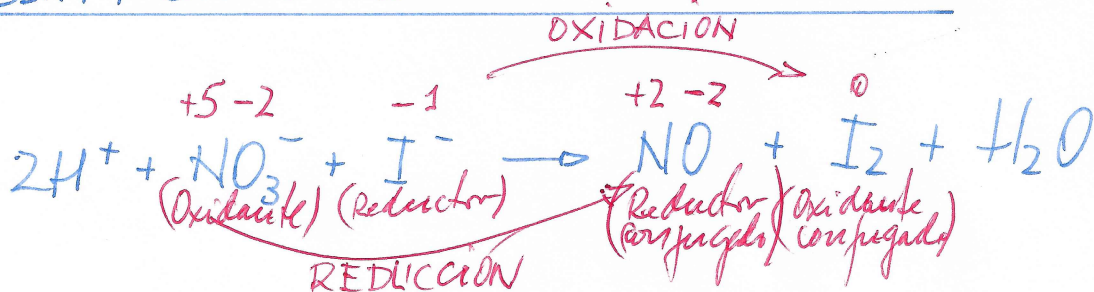 OXIDACIÓN
+5 -2 -1 +2 -2 0
2H⁺ + NO₃⁻ + I⁻ → NO + I₂ + H₂O
(Oxidante) (Reductor) (Reductor conjugado) (Oxidante conjugado)
REDUCCIÓN